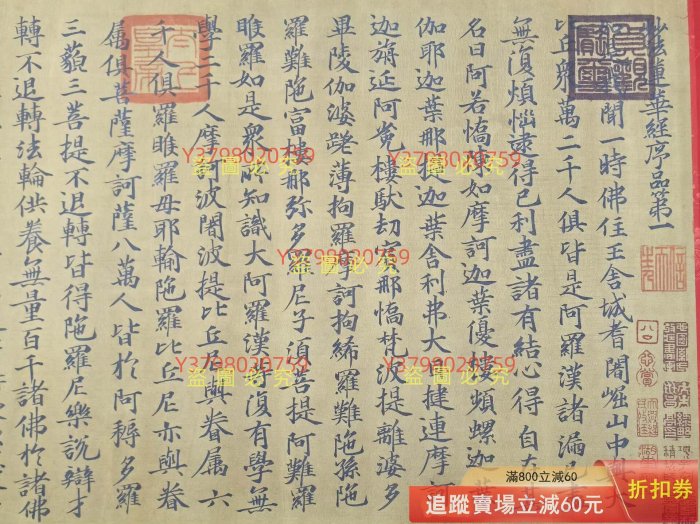 蓮華經序品第一
聞一時佛住王舍城耆闍崛山中
比丘眾萬二千人俱皆是阿羅漢諸漏
無復煩惱逮得己利盡諸有結心得自在
名曰阿若憍陳如摩訶迦葉優樓頻螺迦葉
伽耶迦葉那提迦葉舍利弗大目揵連摩訶
迦旃延阿㝹樓馱劫賓那憍梵波提離婆多
畢陵伽婆蹉薄拘羅摩訶拘絺羅難陁孫陁
羅難陁富樓那弥多羅尼子須菩提阿難羅
睺羅如是衆所知識大阿羅漢等復有學無
學二千人摩訶波闍波提比丘尼與眷属六
千人俱羅睺羅母耶輸陁羅比丘尼亦與眷
属俱菩薩摩訶薩八萬人皆於阿耨多羅
三藐三菩提不退轉皆得陁羅尼樂說辯才
轉不退轉法輪供養無量百千諸佛於諸佛
X3798020759
盜圖必究
X3798020759
盜圖必究
X3798020759
盜圖必究
X3798020759
盜圖必究
X3798020759
盜圖必究
X3798020759
盜圖必究
滿800立減60
追蹤賣場立減60元
折扣券